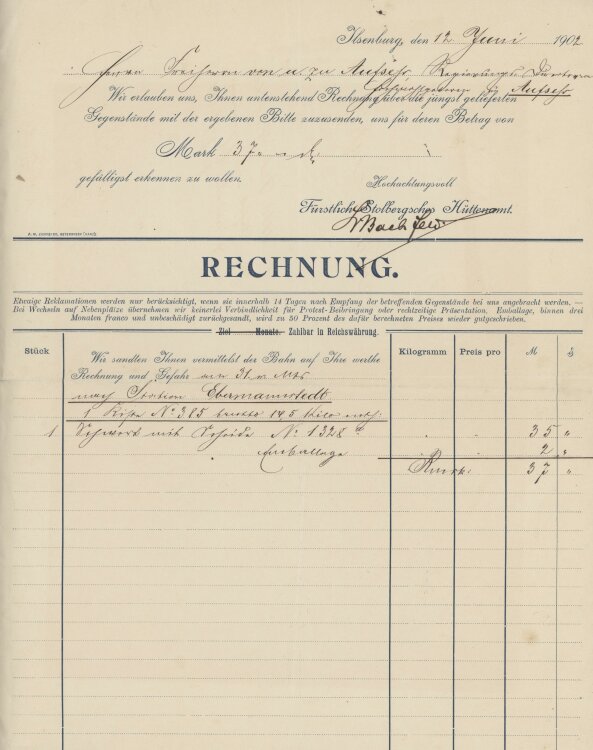 Ilsenburg, den 12 Juni 1902
Herrn Freiherrn von u. zu Aufsess, Regierungs Direktor
für Aufsess
Wir erlauben uns, Ihnen untenstehend Rechnung über die jüngst gelieferten
Gegenstände mit der ergebenen Bitte zuzusenden, uns für deren Betrag von
Mark 37.
gefälligst erkennen zu wollen.
Hochachtungsvoll
Fürstlich Stolbergsches Hüttenamt.
RECHNUNG.
Etwaige Reklamationen werden nur berücksichtigt, wenn sie innerhalb 14 Tagen nach Empfang der betreffenden Gegenstände bei uns angebracht werden. —
Bei Wechseln auf Nebenplätze übernehmen wir keinerlei Verbindlichkeit für Protest-Beibringung oder rechtzeitige Präsentation. Emballage, binnen drei
Monaten franco und unbeschädigt zurückgesandt, wird zu 50 Prozent des dafür berechneten Preises wieder gutgeschrieben.
Ziel Monate. Zahlbar in Reichswährung.
Stück Kilogramm Preis pro M ₰
Wir sandten Ihnen vermittelst der Bahn auf Ihre werthe
Rechnung und Gefahr am 31 v. Mts
nach Station Ebermannstedt
1 Kiste No 385 brutto 14,5 Kilo enth:
1 Schwert mit Scheide No 1328 35 "
Emballage 2 "
Rmrk: 37 "